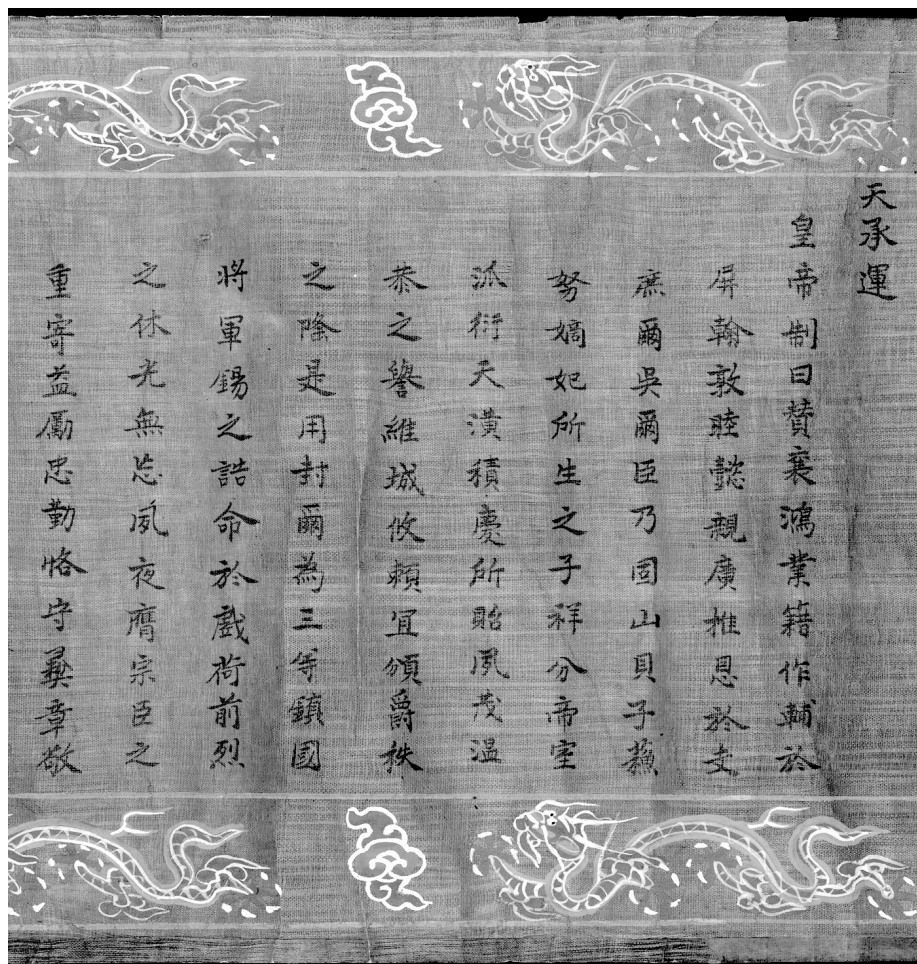 天承運
皇帝制曰贊襄鴻業籍作輔於
屏翰敦睦懿親廣推恩於支
庶爾吳爾臣乃固山貝子蘓
努嫡妃所生之子祥分帝室
派衍天潢積慶所貽夙茂溫
恭之譽維城攸賴宜頒爵秩
之隆是用封爾為三等鎮國
將軍錫之誥命於戲荷前烈
之休光無忘夙夜膺宗臣之
重寄益勵忠勤恪守彝章敬